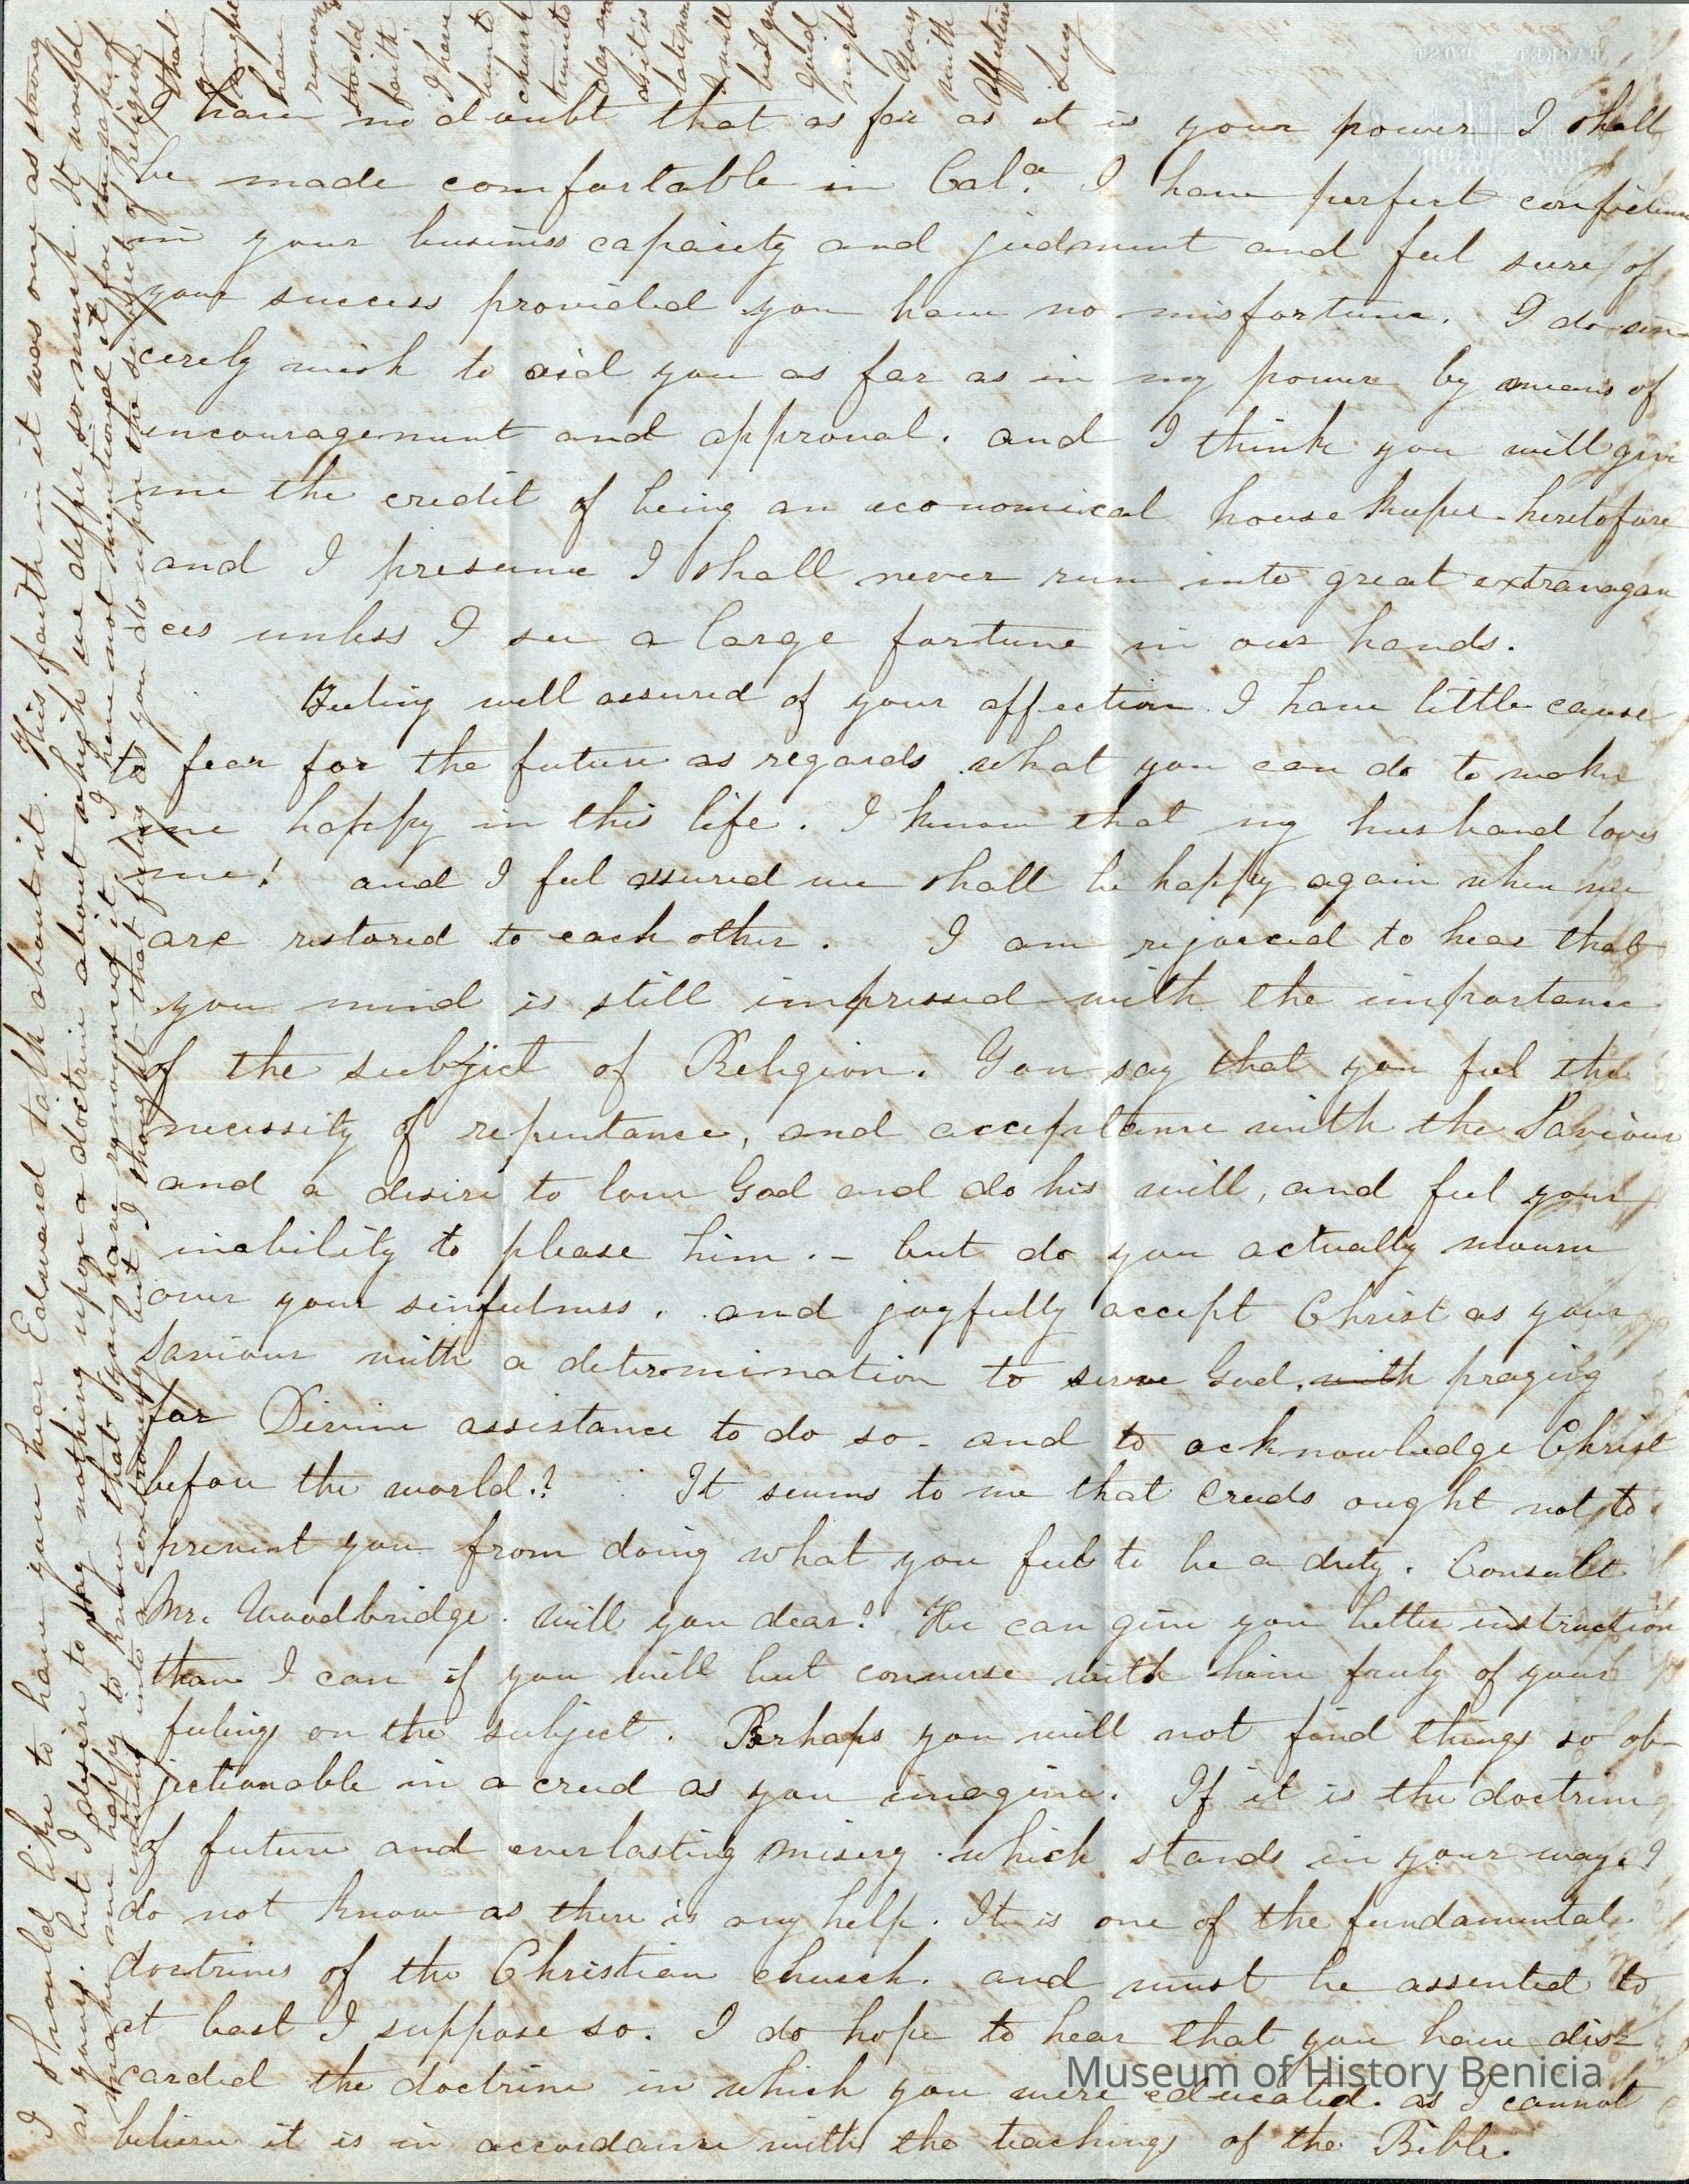 I have no doubt that as far as it is your power I shall
be made comfortable in Cala. I have perfect confidence
in your business capacity and judment and feel sure of
your success provided you have no misfortune. I do sin-
cerely wish to aid you as far as in my power by means of
encouragement and approval. and I think you will give
me the credit of being an economical house keeper heretofore
and I presume I shall never run into great extravagan
ces unless I see a large fortune in our hands.
Feeling well assured of your affection I have little cause
to fear for the future as regards what you can do to make
me happy in this life. I know that my husband loves
me! and I feel assured we shall be happy again when we
are restored to each other. I am rejoiced to hear that
you mind is still impressed with the importance
of the subject of Religion. You say that you feel the
necessity of repentance, and acceptance with the Saviour
and a desire to love God and do his will, and feel your
inability to please him. - but do you actually mourn
over your sinfulness. and joyfully accept Christ as your
Saviour with a determination to serve God, with praying
for Divine assistance to do so - and to acknowledge Christ
before the world? It seems to me that creeds ought not to
prevent you from doing what you feel to be a duty. Consult
Mr. Woodbridge. will you dear? He can give you better instruction
than I can if you will but converse with him freely of your
feelings on the subject. Perhaps you will not find things so ob-
jectionable in a creed as you imagine. If it is the doctrine
of future and everlasting misery which stands in your way. I
do not know as there is any help. It is one of the fundamental
doctrines of the Christian church. and must be assented to
at least I suppose so. I do hope to hear that you have dis-
carded the doctrine in which you were educated. as I cannot
believe it is in accordance with the teachings of the Bible.
I should like to have you hear Edward talk about it. His faith in it was once as strong
as yours. but I desire to say nothing upon a doctrine about which we differ so much. It would
make me happy to know that you have renounced it. I have not mentioned it for the sake of
entering into controversy but I thought that feeling as you do upon the subject of Religion
that
have
to old
faith
I have
church
day
as it is
I will
bid
night
with
Affection
Lucy
PACKET POST
Museum of History Benicia